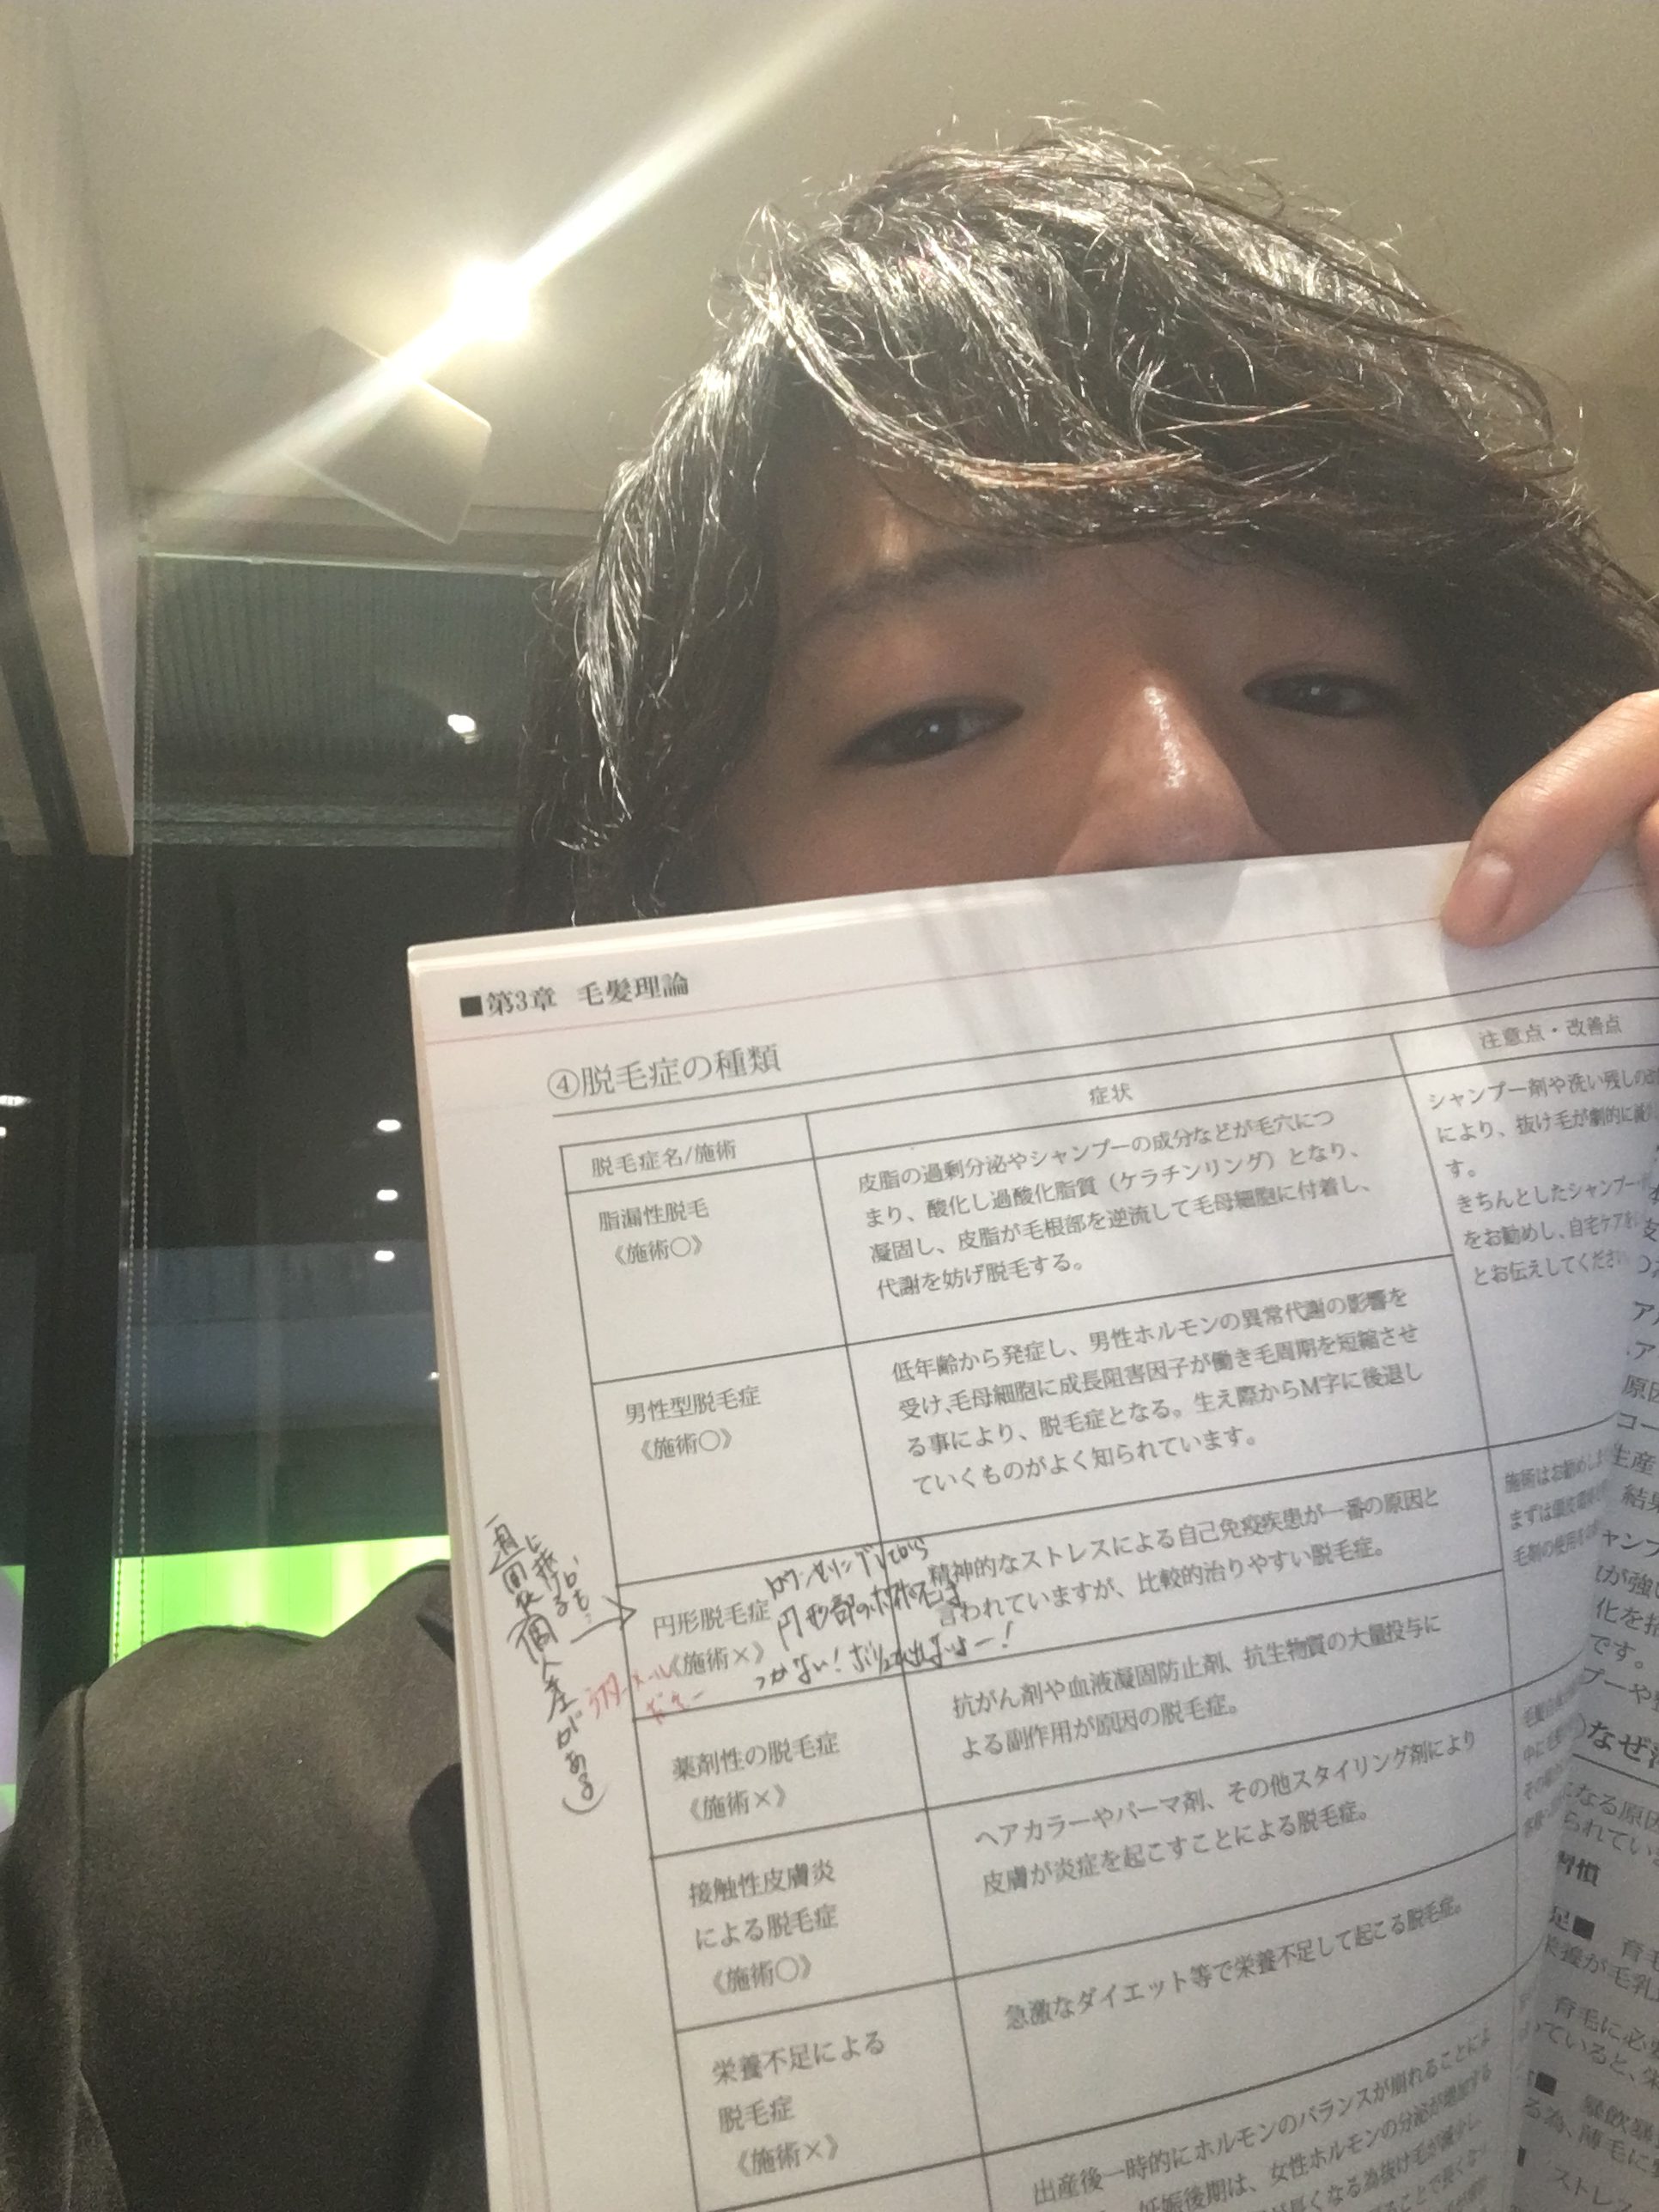 ■第3章 毛髪理論
④脱毛症の種類
脱毛症名/施術
症状
注意点・改善点
脂漏性脱毛
《施術〇》
皮脂の過剰分泌やシャンプーの成分などが毛穴につ
まり、酸化し過酸化脂質（ケラチンリング）となり、
凝固し、皮脂が毛根部を逆流して毛母細胞に付着し、
代謝を妨げ脱毛する。
シャンプー剤や洗い残しの
により、抜け毛が劇的に
す。
きちんとしたシャンプー
をお勧めし、自宅ケアを
とお伝えしてくださ
男性型脱毛症
《施術〇》
低年齢から発症し、男性ホルモンの異常代謝の影響を
受け、毛母細胞に成長阻害因子が働き毛周期を短縮させ
る事により、脱毛症となる。生え際からM字に後退し
ていくものがよく知られています。
円形脱毛症
《施術×》
カウンセリングしてから
円形部の
つかない！
個人差がある）
精神的なストレスによる自己免疫疾患が一番の原因と
言われていますが、比較的治りやすい脱毛症。
施術はお勧めし
まずは
薬剤性の脱毛症
《施術×》
抗がん剤や血液凝固防止剤、抗生物質の大量投与に
よる副作用が原因の脱毛症。
接触性皮膚炎
による脱毛症
《施術〇》
ヘアカラーやパーマ剤、その他スタイリング剤により
皮膚が炎症を起こすことによる脱毛症。
栄養不足による
脱毛症
《施術×》
急激なダイエット等で栄養不足して起こる脱毛症。
出産後一時的にホルモンのバランスが崩れることによ
妊娠後期は、女性ホルモンの分泌が増加する
長くなる為抜け毛が減少し
原因
コー
生産
結果
ャンプ
が強い
化を招
です。
プーや
のなぜ
になる原因
られてい
習慣
足■ 育毛
栄養が毛乳
育毛に必
っていると、栄
■ 暴飲暴
る為、薄毛に
■ ストレ